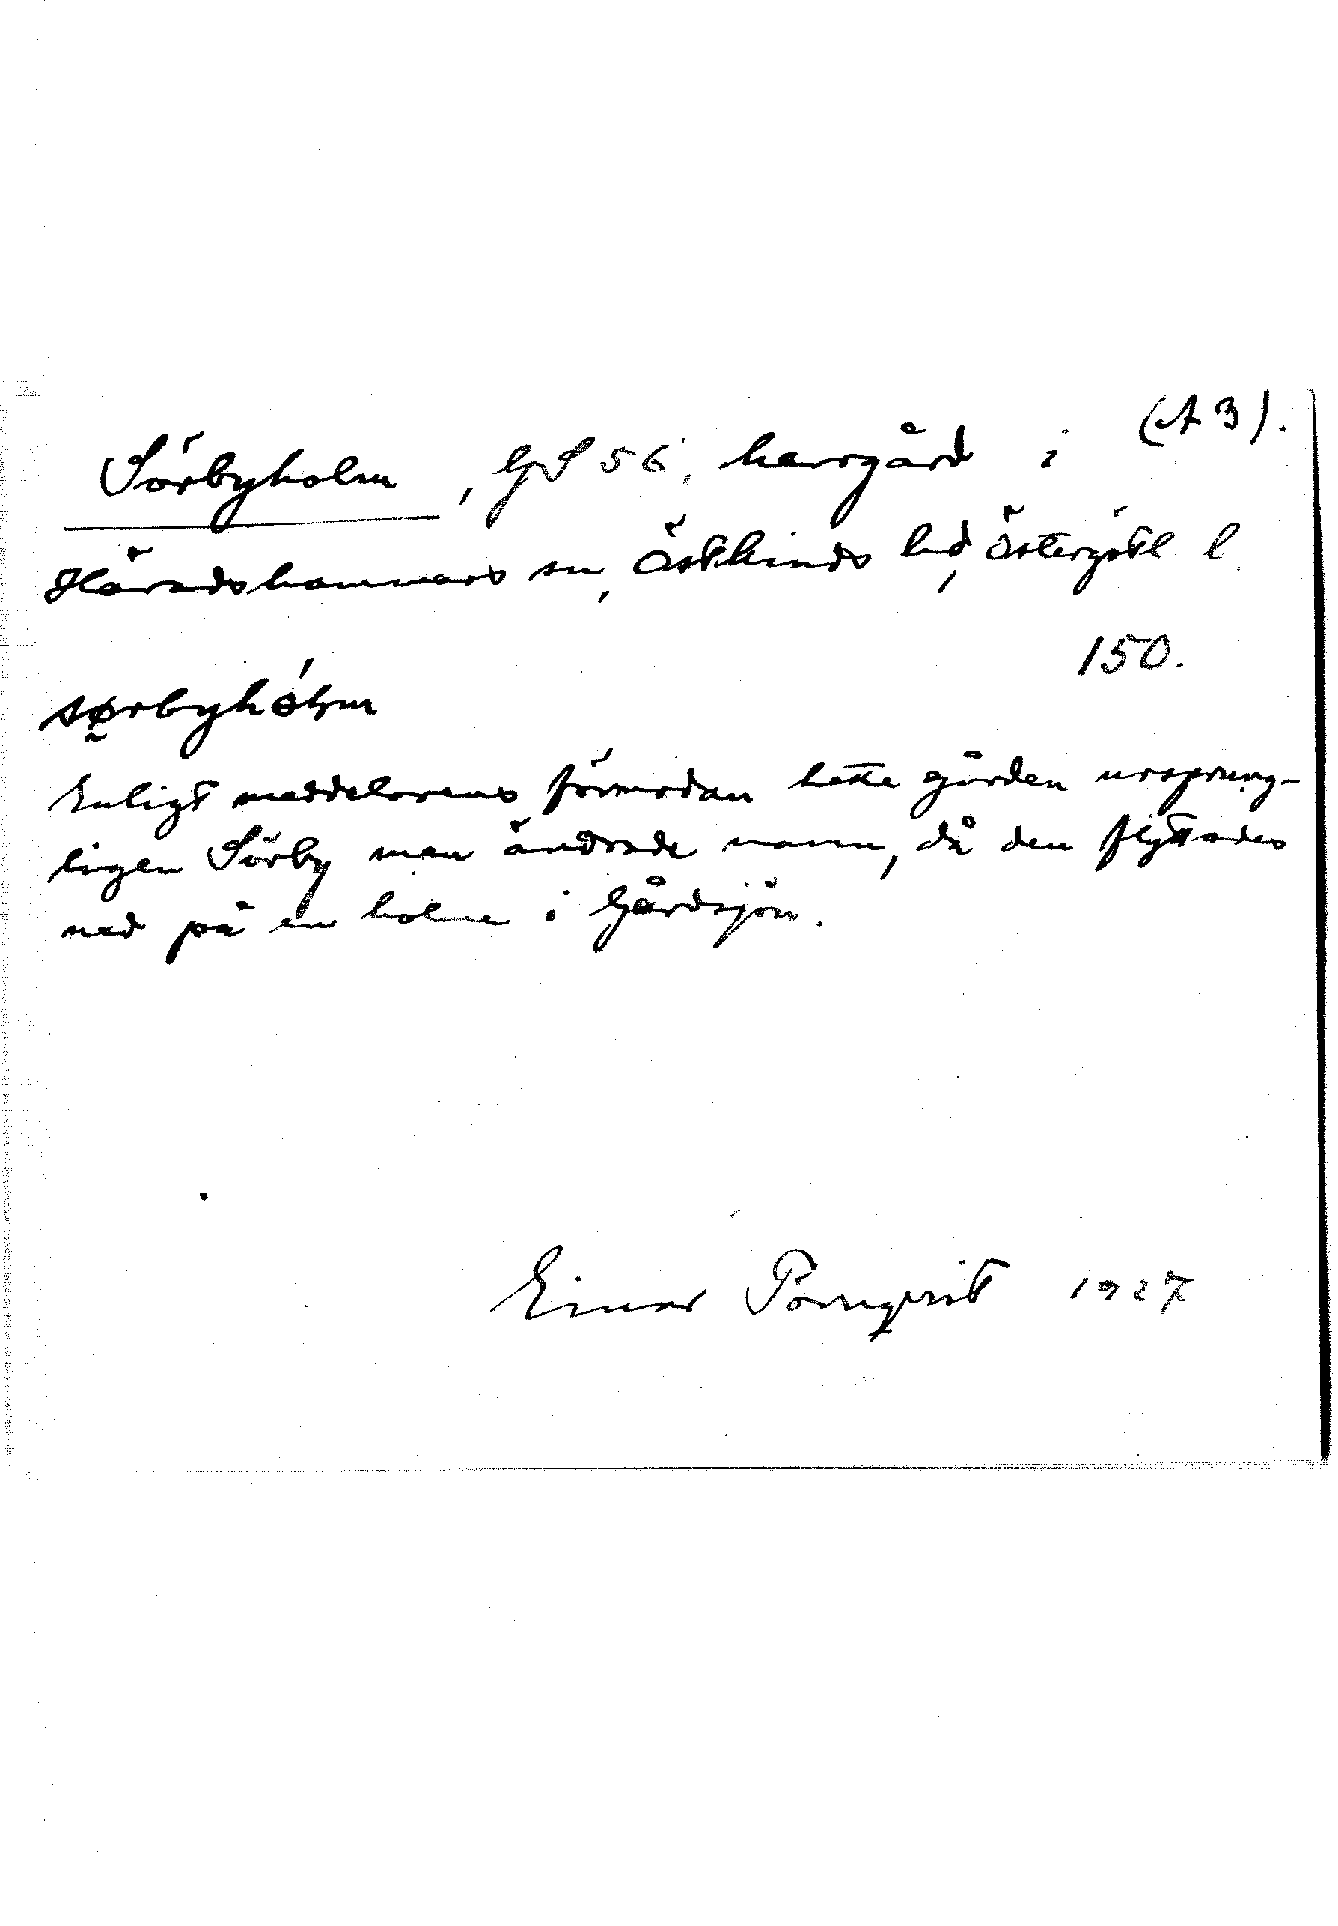 (A 3).
Sörbyholm, GS 56, herrgård i
Häradshammars sn, Östkinds hd, Östergötl l
150.
sørbyhólm
Enligt meddelarens förmodan hette gården ursprung-
ligen Sörby men ändrade namn, då den flyttades
ned på en holme i Gårdsjön.
Einar Pornqvist 1927